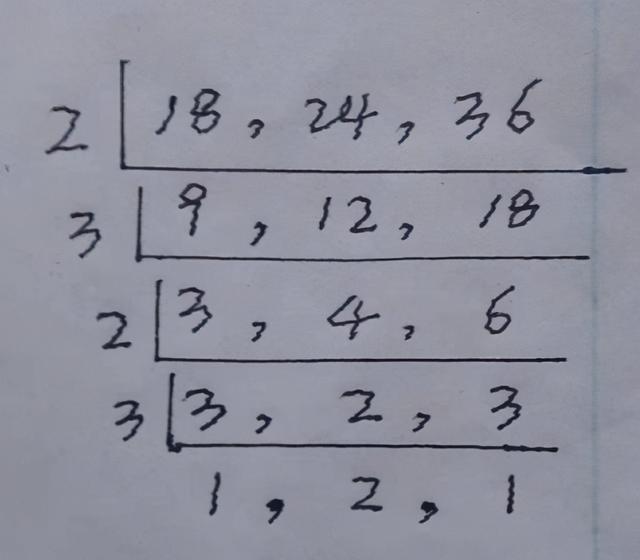 2 18, 24, 36
3 9, 12, 18
2 3, 4, 6
3 3, 2, 3
1, 2, 1